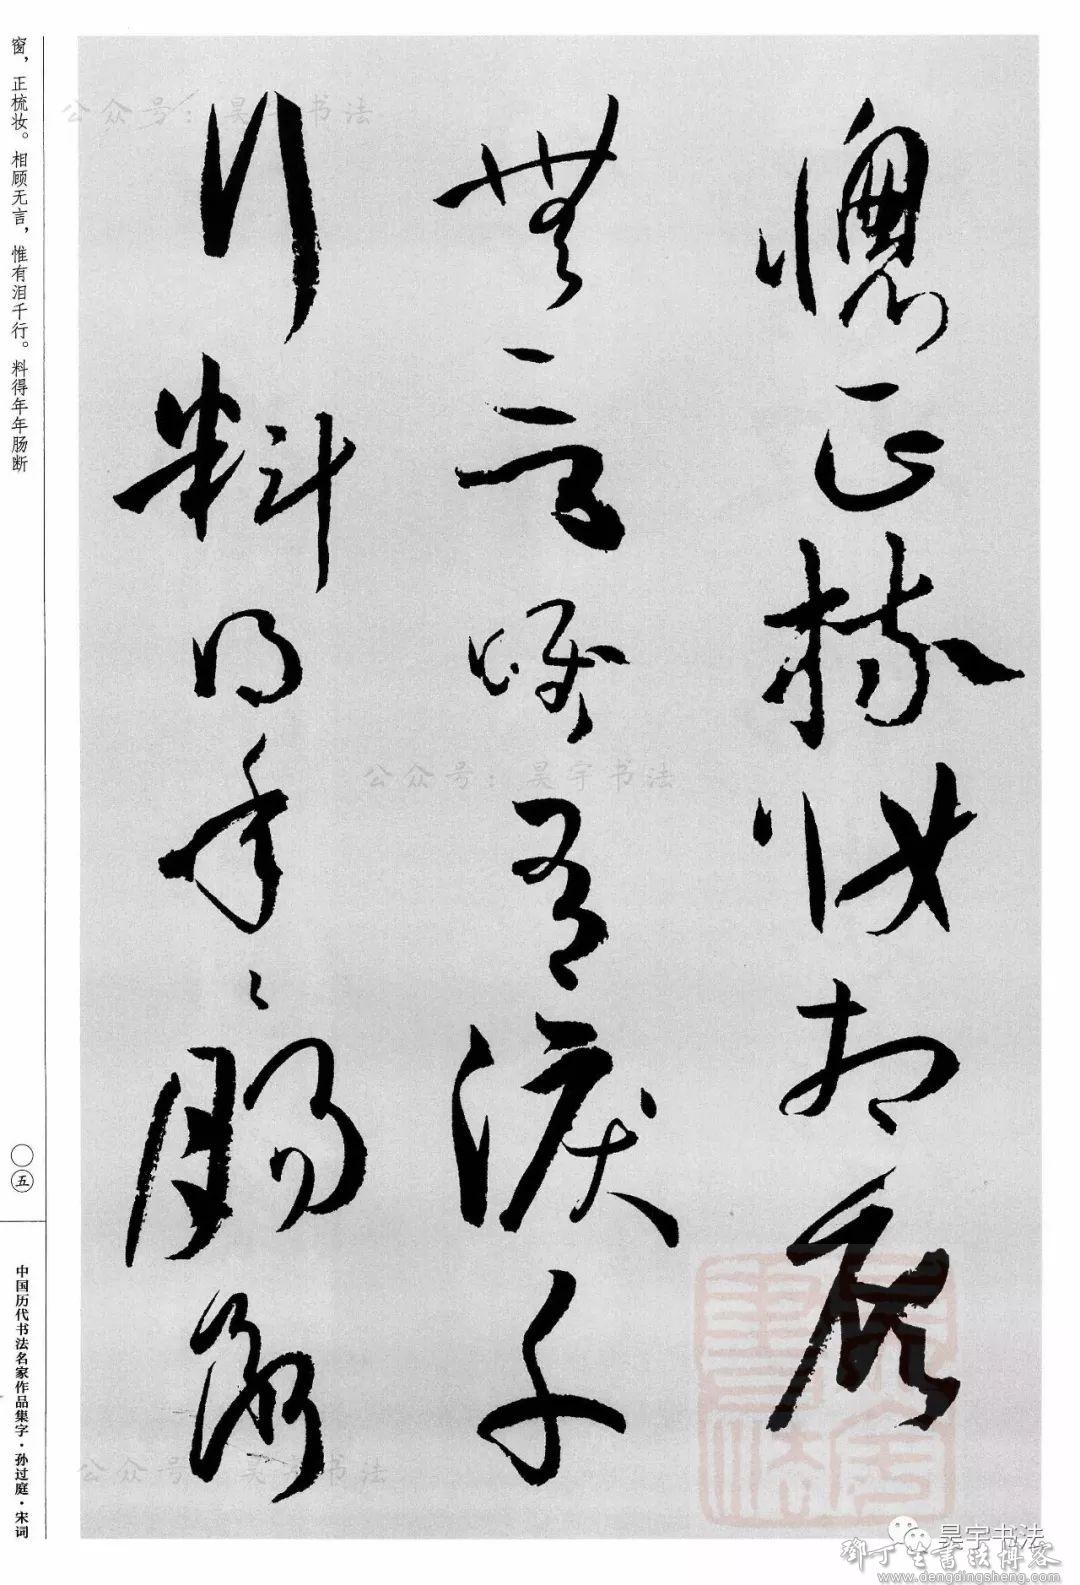 窗，正梳妆。相顾无言，惟有泪千行。料得年年肠断
〇五
中国历代书法名家作品集字·孙过庭·宋词
窗正梳妆相顾
無言唯有淚千
行料得年々腸断
公众号：昊宇书法
公众号：昊宇书法
公众号：昊宇书法
昊宇书法
鄧丁生書法博客
www.dengdingsheng.com